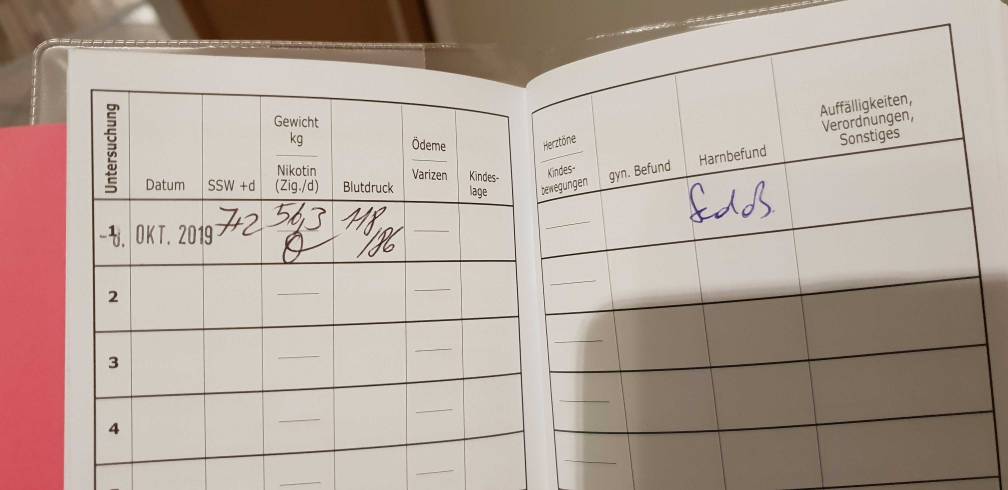 Untersuchung
Datum
SSW +d
Gewicht
kg
Nikotin
(Zig./d)
Blutdruck
Ödeme
Varizen
Kindes-
lage
Herztöne
Kindes-
bewegungen
gyn. Befund
Harnbefund
Auffälligkeiten,
Verordnungen,
Sonstiges
1
OKT. 2019
7+2
56,3
0
118
/86
2
3
4